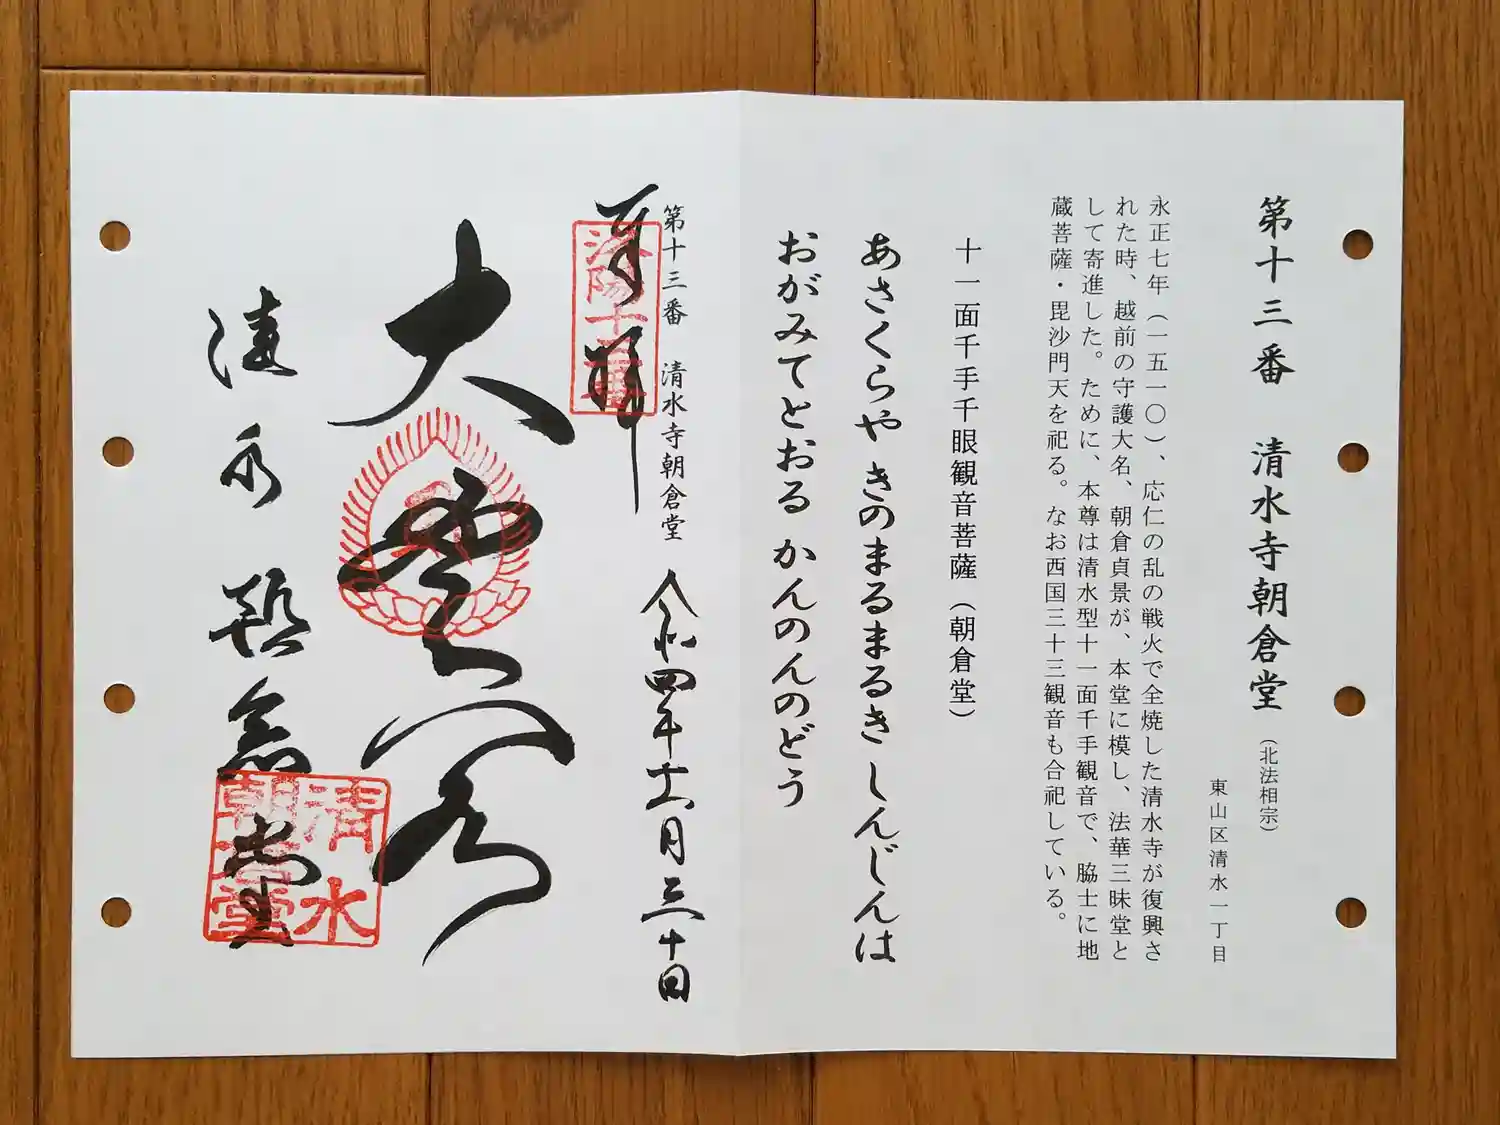 第十三番 清水寺朝倉堂（北法相宗）
東山区清水一丁目
永正七年（一五一〇）、応仁の乱の戦火で全焼した清水寺が復興さ
れた時、越前の守護大名、朝倉貞景が、本堂に模し、法華三昧堂と
して寄進した。ために、本尊は清水型十一面千手観音で、脇士に地
蔵菩薩・毘沙門天を祀る。なお西国三十三観音も合祀している。
十一面千手千眼観音菩薩（朝倉堂）
あさくらや きのまるまるき しんじんは
おがみてとおる かんのんのどう
第十三番 清水寺朝倉堂
令和四年十一月三十日
奉拝
洛陽十三番
大悲閣
清水 朝倉堂
清水
朝倉堂